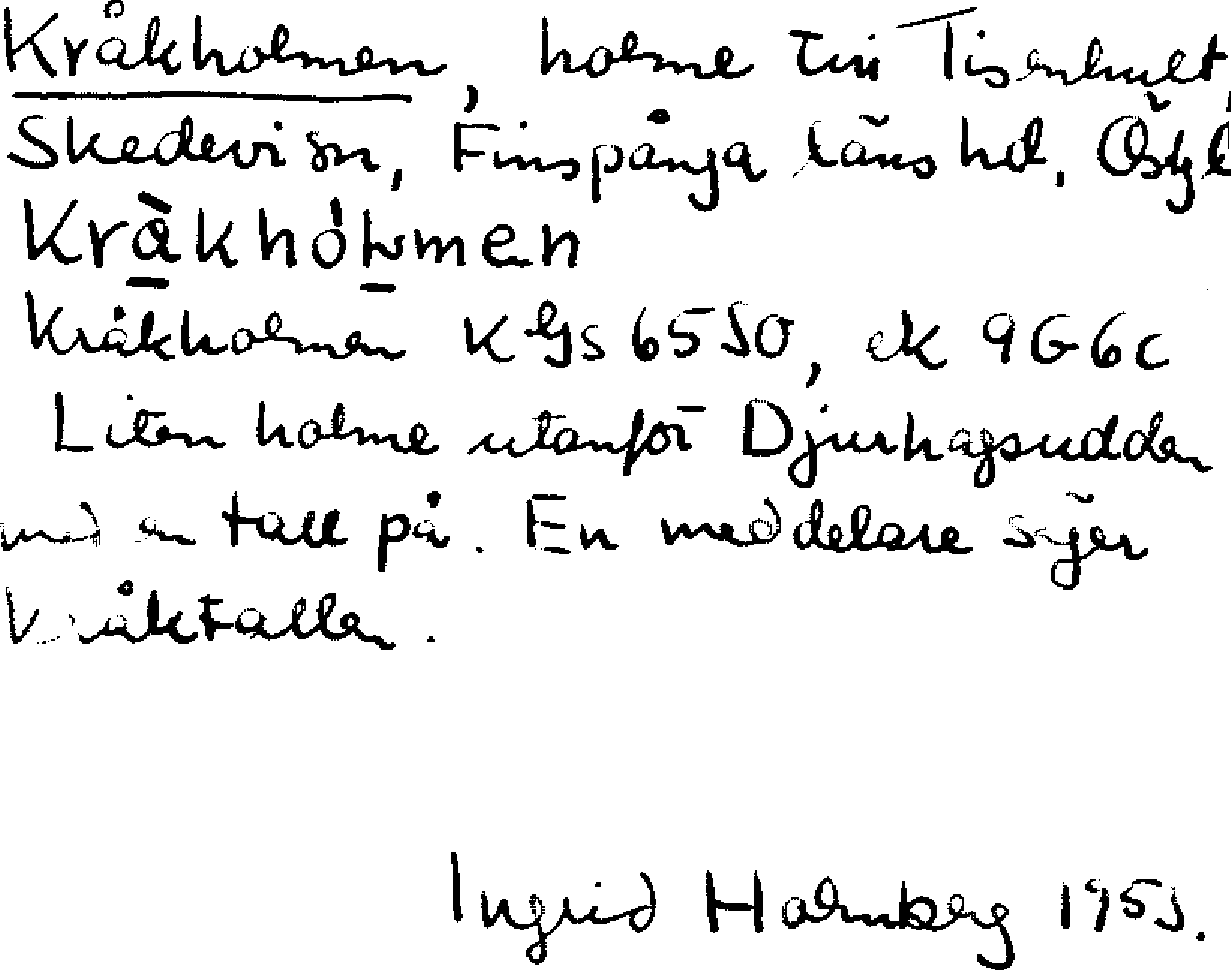 Kråkholmen, holme till Tisenhult,
Skedevi sn, Finspånga läns hd, Östgl
Kråkhólmen
Kråkholmen K Ggs 6550, ek 9G6c
Liten holme utanför Djurhagsudden
med en tall på. En meddelare säger
Kråktallen.
Ingrid Holmberg 1955.